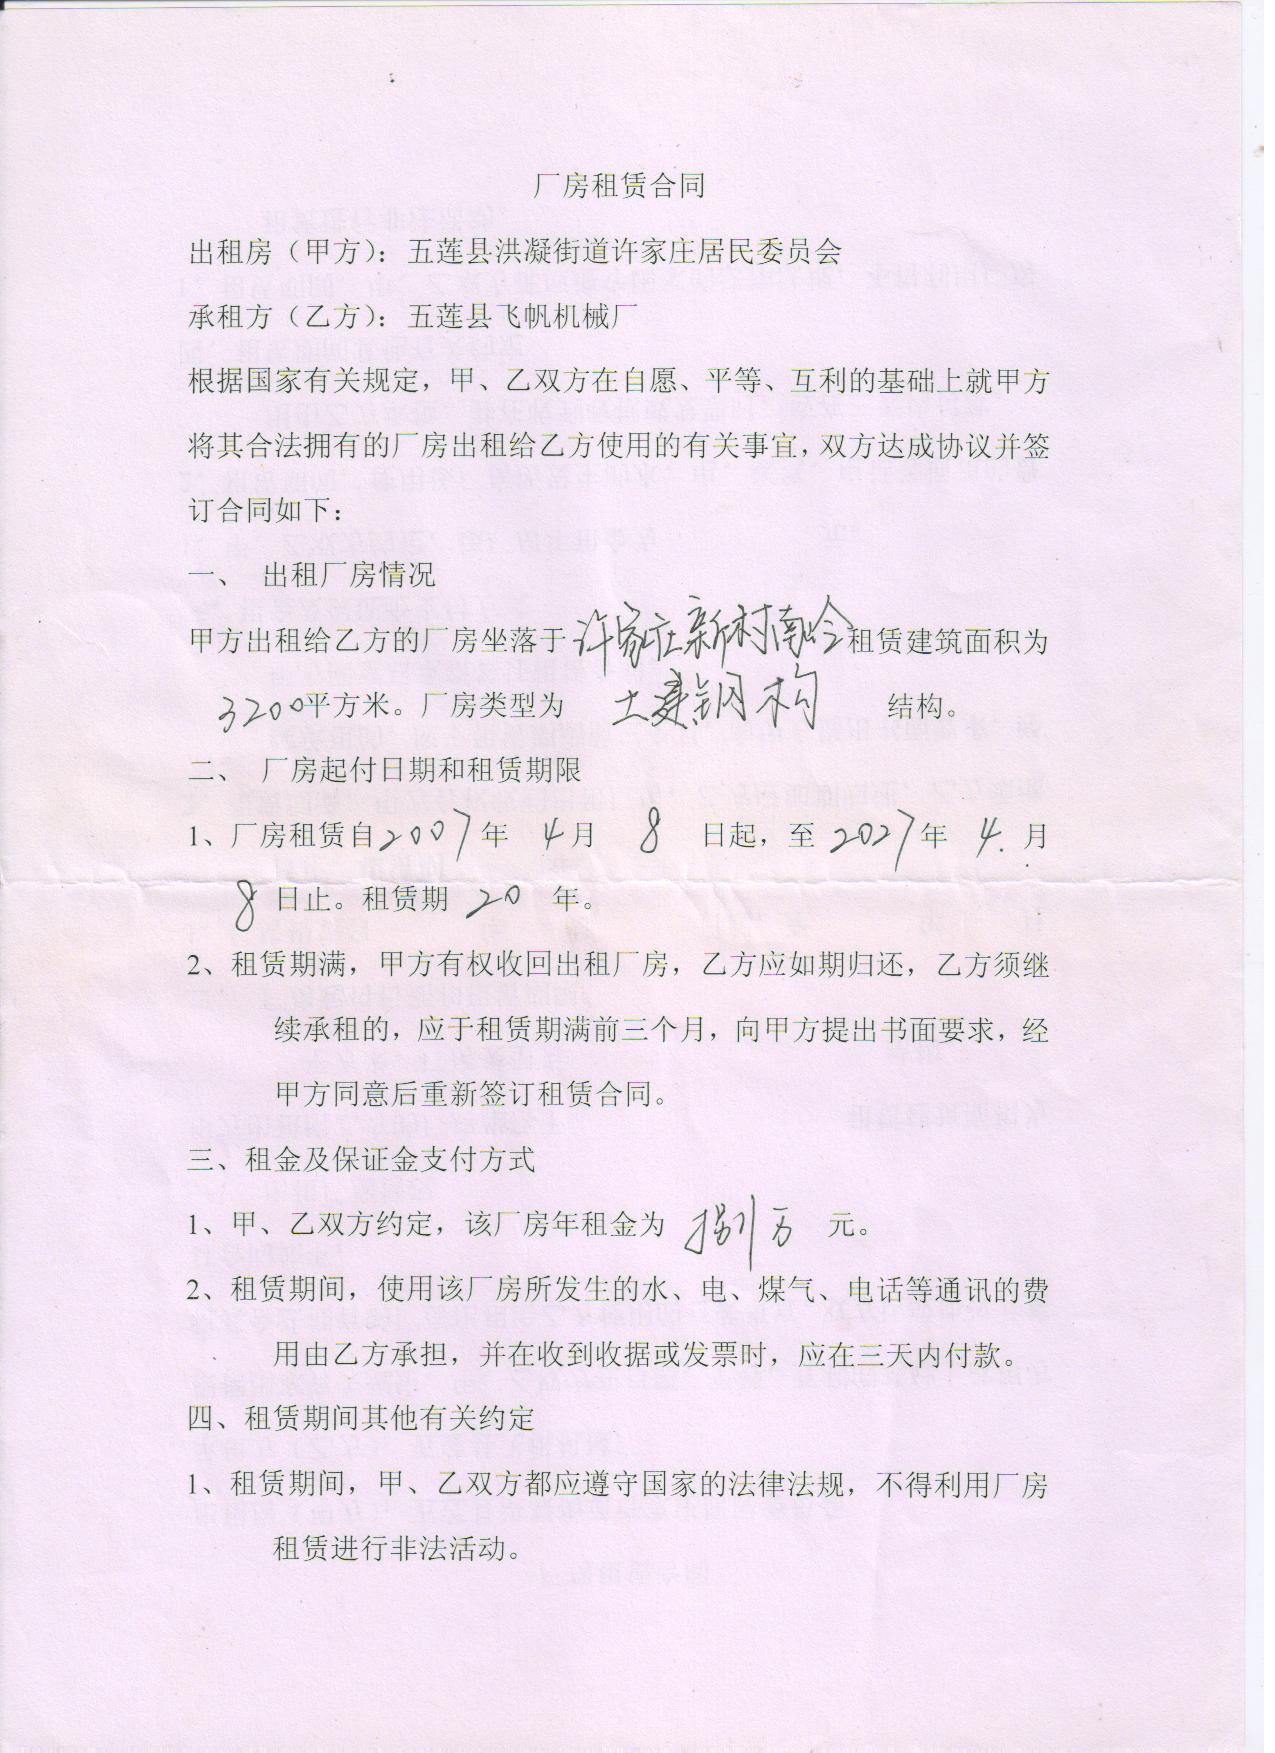 厂房租赁合同
出租房（甲方）：五莲县洪凝街道许家庄居民委员会
承租方（乙方）：五莲县飞帆机械厂
根据国家有关规定，甲、乙双方在自愿、平等、互利的基础上就甲方
将其合法拥有的厂房出租给乙方使用的有关事宜，双方达成协议并签
订合同如下：
一、 出租厂房情况
甲方出租给乙方的厂房坐落于许家庄新村南岭租赁建筑面积为
3200平方米。厂房类型为 土建钢构 结构。
二、 厂房起付日期和租赁期限
1、厂房租赁自2007年 4月 8 日起，至2027年 4.月
8日止。租赁期 20 年。
2、租赁期满，甲方有权收回出租厂房，乙方应如期归还，乙方须继
续承租的，应于租赁期满前三个月，向甲方提出书面要求，经
甲方同意后重新签订租赁合同。
三、租金及保证金支付方式
1、甲、乙双方约定，该厂房年租金为 捌万 元。
2、租赁期间，使用该厂房所发生的水、电、煤气、电话等通讯的费
用由乙方承担，并在收到收据或发票时，应在三天内付款。
四、租赁期间其他有关约定
1、租赁期间，甲、乙双方都应遵守国家的法律法规，不得利用厂房
租赁进行非法活动。